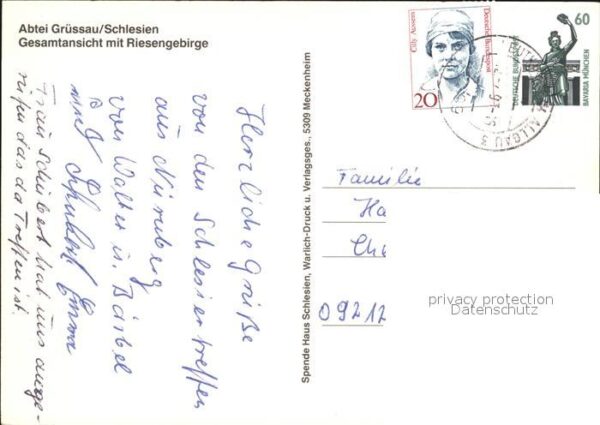 Abtei Grüssau/Schlesien
Gesamtansicht mit Riesengebirge
Herzliche Grüße
von den Schlesiertreffen
aus Nürnberg
von Walter u. Bärbel
und Schubert Emma
Frau Schubert hat uns ange-
rufen das da Treffen ist.
Spende Haus Schlesien, Warlich-Druck u. Verlagsges., 5309 Meckenheim
Cilly Aussem
Deutsche Bundespost
20
60
DEUTSCHE BUNDESPOST
BAVARIA MÜNCHEN
ALLGÄU 3
Familie
Ha
Che
09212
privacy protection
Datenschutz